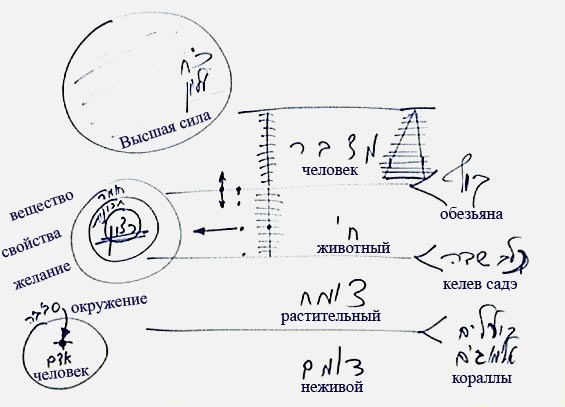 כ׳ח
עליון
Высшая сила
מדבר
человек
קוף
обезьяна
вещество
חומר
תכונות
свойства
רצון
желание
חי
животный
כלב שדה
келев садэ
צומח
растительный
סביבה
окружение
אדם
человек
דומם
неживой
אלמוגים
кораллы